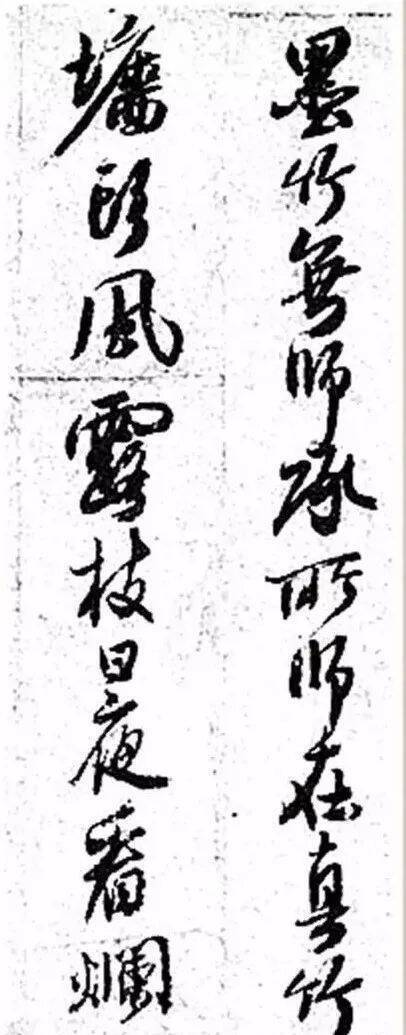 墨竹無師承所師在真竹
墻頭風露枝日夜看爛